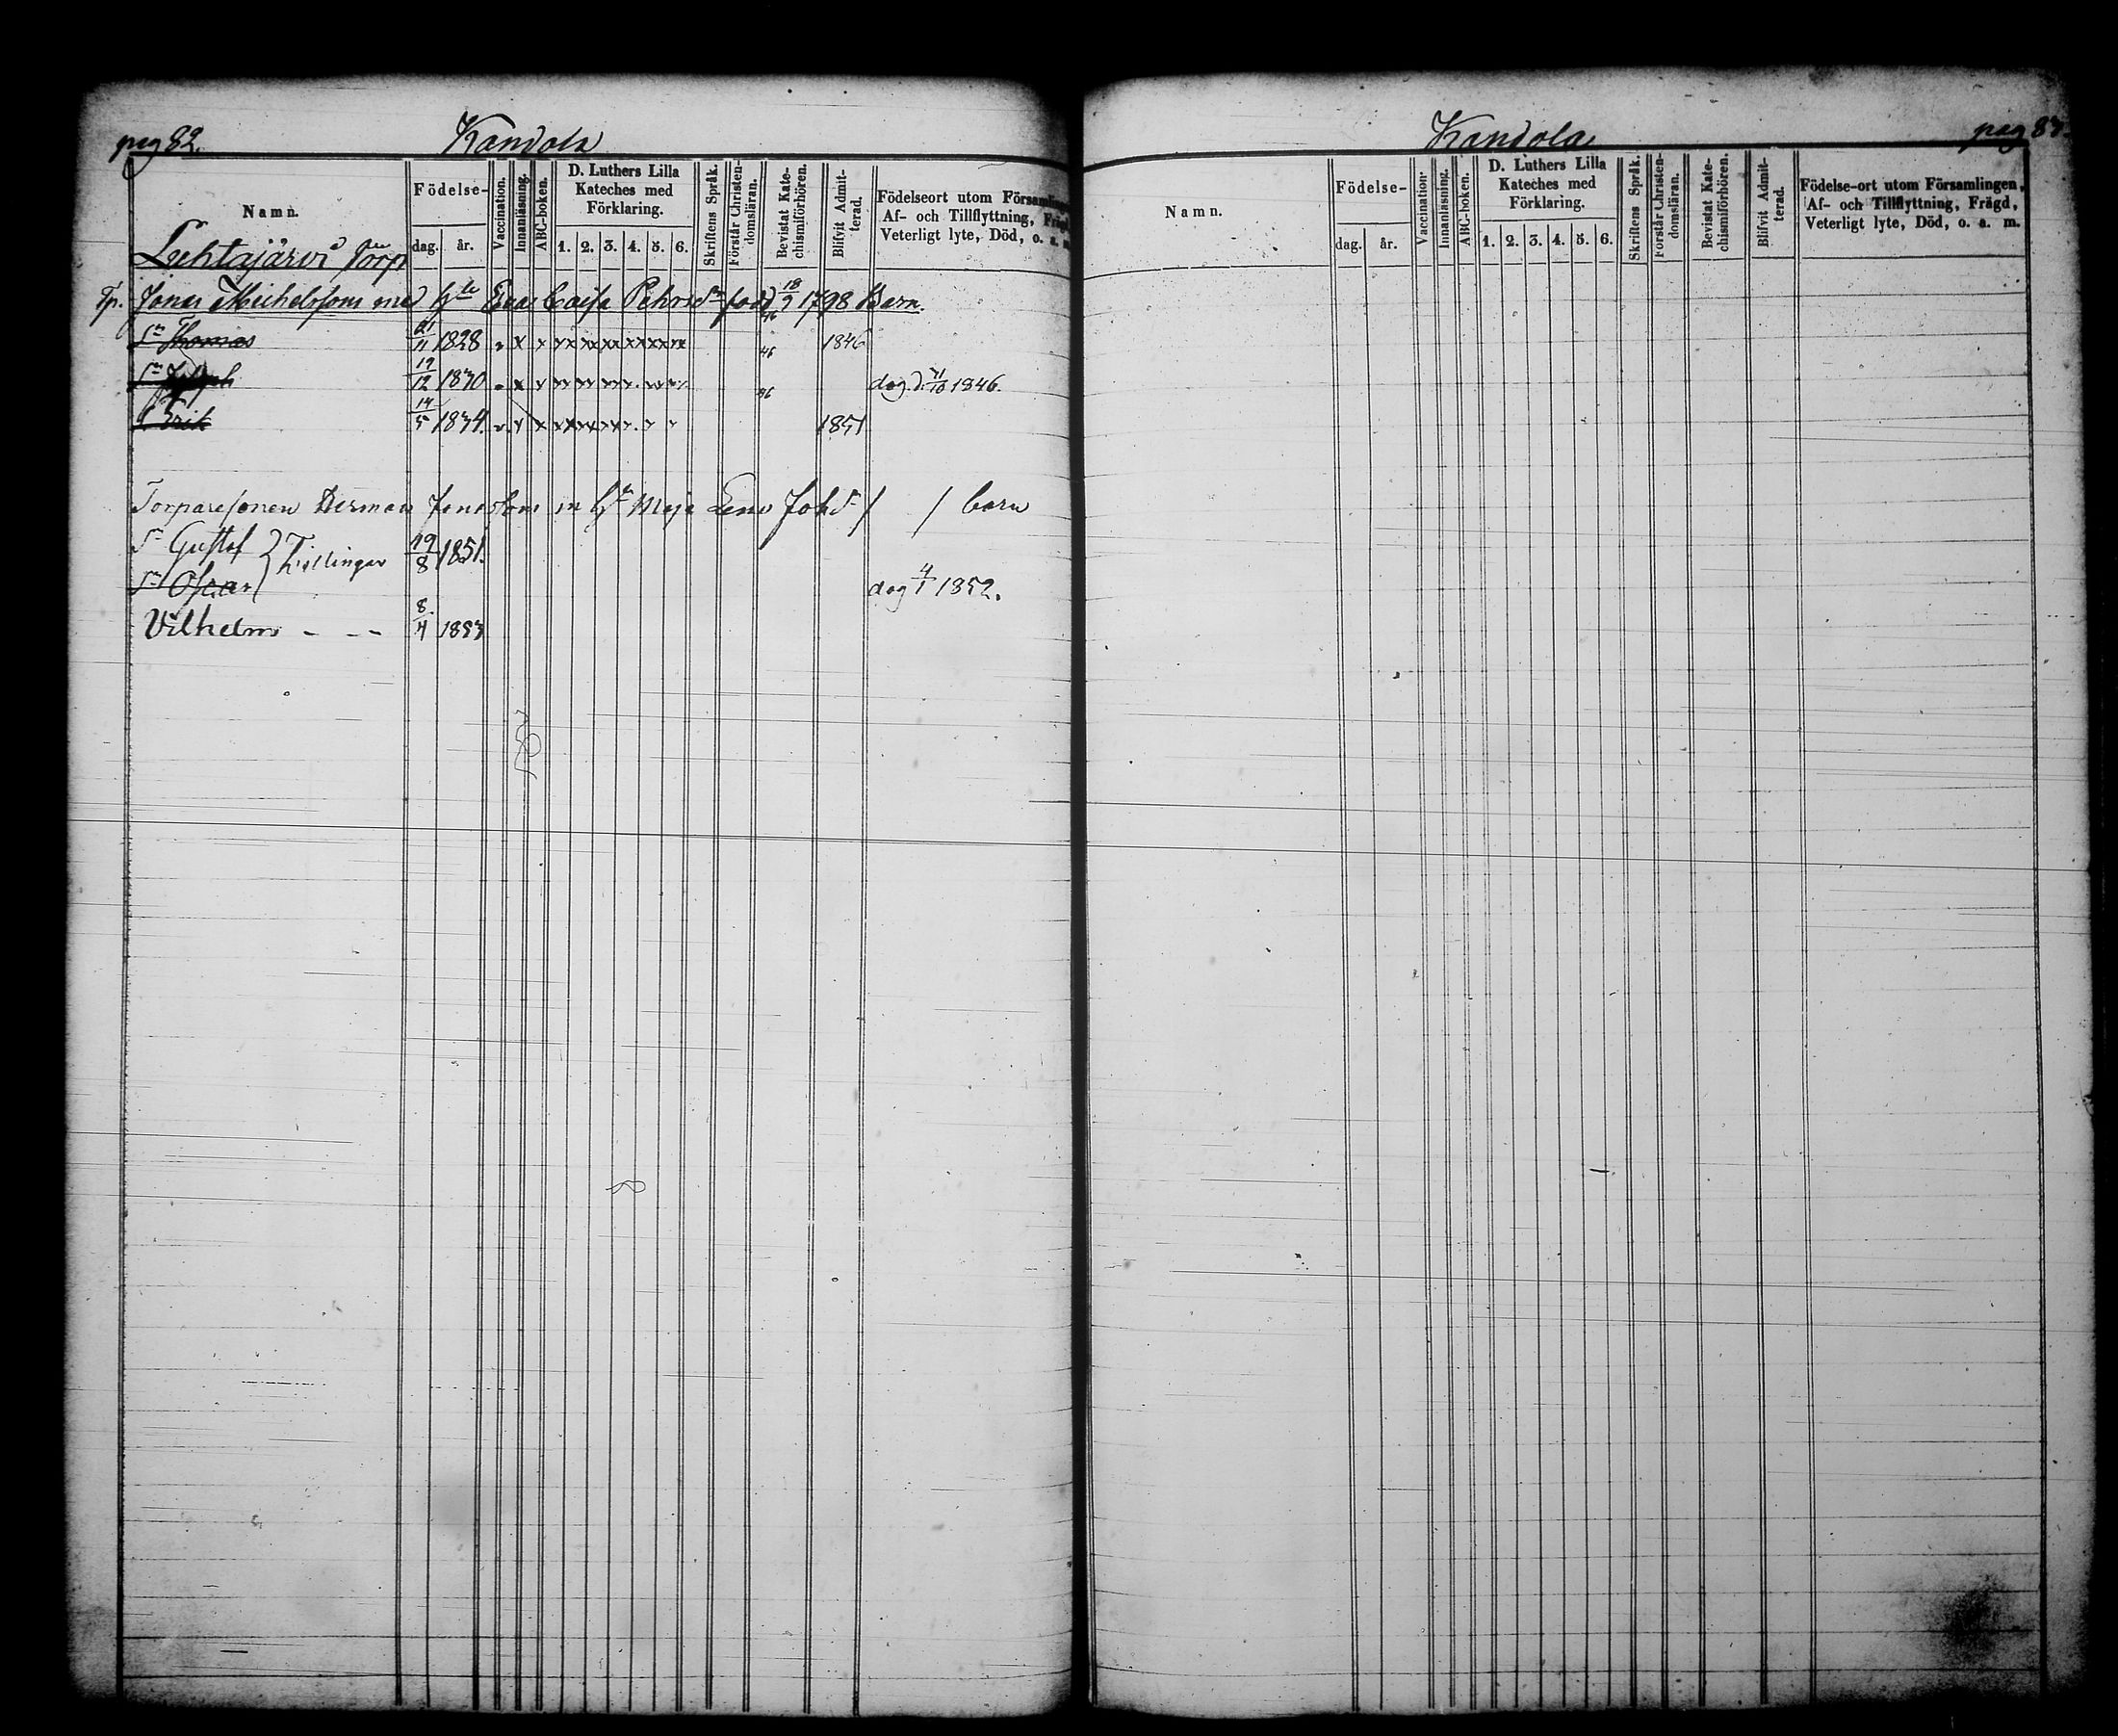 pag 82.
Kandola
Namn.
Födelse-
dag.
år.
Vaccination.
Innanläsning.
ABC-boken.
D. Luthers Lilla
Kateches med
Förklaring.
1. 2. 3. 4. 5. 6.
Skriftens Språk.
Förstår Christen-
domsläran.
Bevistat Kate-
chismiförhören.
Blifvit Admit-
terad.
Födelseort utom Församlingen
Af- och Tillflyttning, Frägd
Veterligt lyte, Död, o. a. m.
Lehtajärvi Torp
Tp. Jonas Michelsson med Hu Eva Caisa Pehrsdr född 18/9 1798 Barn.
Sn Thomas 21/11 1828 46 1846
Sn 19/12 1830 46 dog d. 31/10 1846.
S. Erik 14/5 1834. 46 1851
Torparesonen Herman Jonasson m H Maja Lena Johdr / / barn
Sn Gustaf } Tvillingar 19/8 1851.
Sn Oscar } dog 4/1 1852.
Vilhelm - - - 8/4 1853
Kandola
pag 83.
Namn.
Födelse-
dag.
år.
Vaccination.
Innanläsning.
ABC-boken.
D. Luthers Lilla
Kateches med
Förklaring.
1. 2. 3. 4. 5. 6.
Skriftens Språk.
Förstår Christen-
domsläran.
Bevistat Kate-
chismiförhören.
Blifvit Admit-
terad.
Födelse-ort utom Församlingen,
Af- och Tillflyttning, Frägd,
Veterligt lyte, Död, o. a. m.